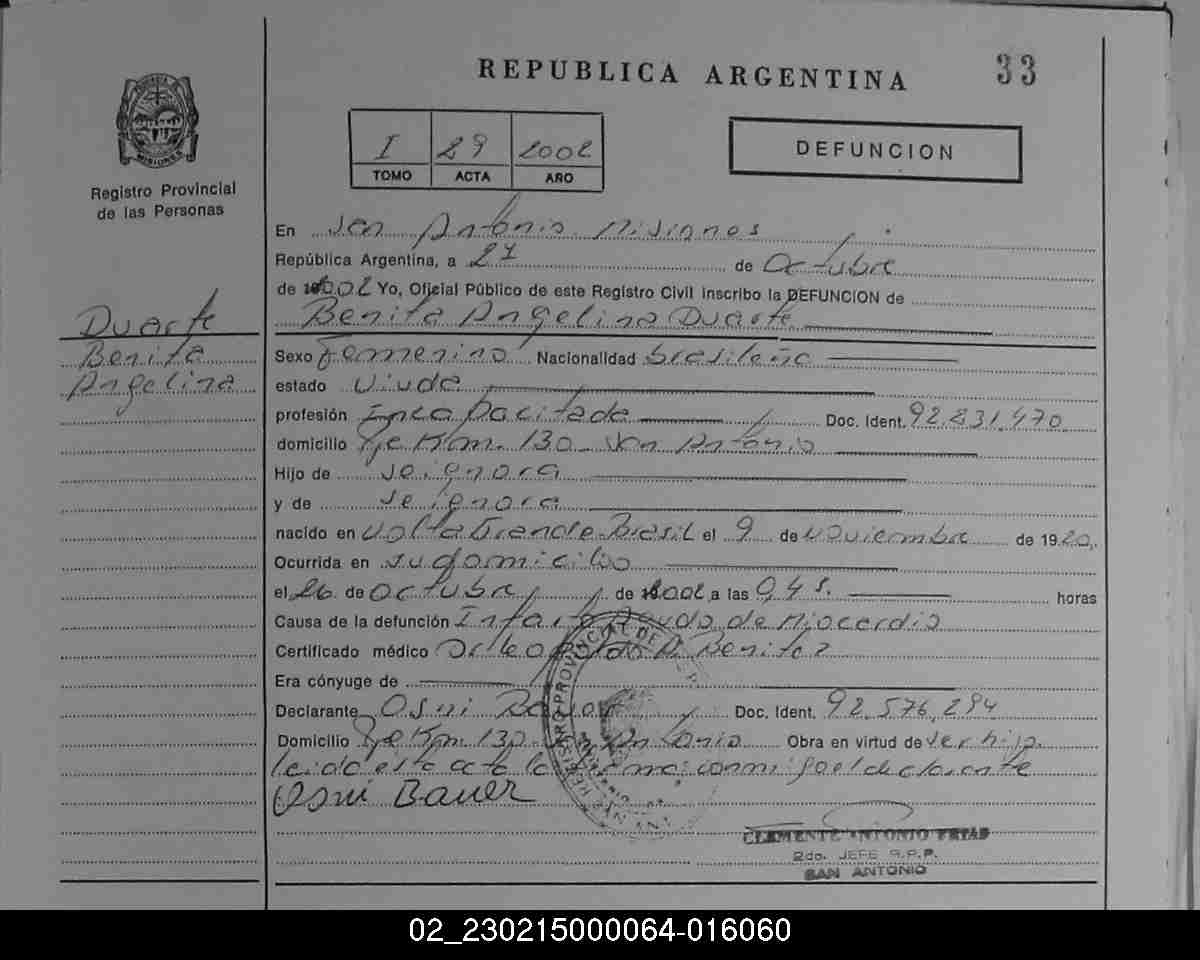 REPUBLICA ARGENTINA
33
PROVINCIA DE MISIONES
Registro Provincial
de las Personas
I 29 2002
TOMO ACTA AÑO
DEFUNCION
En San Antonio Misiones
República Argentina, a 27 de Octubre
de 2002 Yo, Oficial Público de este Registro Civil inscribo la DEFUNCION de
Benita Angelina Duarte
Duarte
Benita
Angelina
Sexo Femenino Nacionalidad brasileña
estado Viuda
profesión Incapacitada Doc. Ident. 92.831.470
domicilio Pje Km. 130 San Antonio
Hijo de Se ignora
y de Se ignora
nacido en Volta Grande Brasil el 9 de Noviembre de 1920
Ocurrida en su domicilio
el 26 de Octubre de 2002 a las 0,45. horas
Causa de la defunción Infarto Agudo de Miocardio
Certificado médico Dr Leopoldo Benitez
Era cónyuge de
Declarante Osni Bauer Doc. Ident. 92.576.294
Domicilio Pje Km. 130 San Antonio Obra en virtud de ser hijo.
Leida esta acta la firma conmigo el declarante
Osni Bauer
REGISTRO PROVINCIAL DE
CLEMENTE ANTONIO FRIAS
2do. JEFE R.P.P.
SAN ANTONIO
02_230215000064-016060